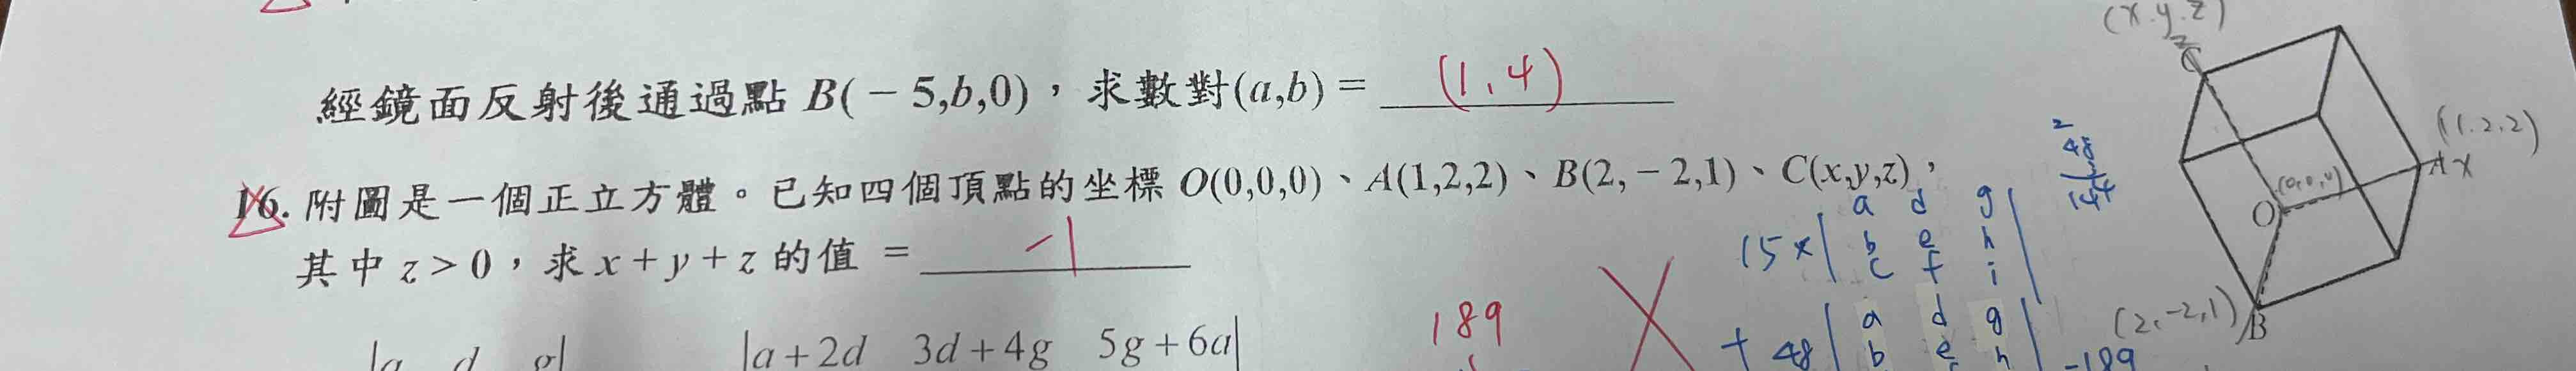 經鏡面反射後通過點 B(－5,b,0)，求數對(a,b)＝ (1,4)
16. 附圖是一個正立方體。已知四個頂點的坐標 O(0,0,0)、A(1,2,2)、B(2,－2,1)、C(x,y,z)，
其中 z＞0，求 x＋y＋z 的值 ＝ -1
a+2d 3d+4g 5g+6a
189
15×| a d g |
b e h
c f i
+ 48| a d g |
b e h
-189
2
48
3
144
(x.y.z)
C
(1.2.2)
A x
(0,0,0)
O
(2,-2,1)
B